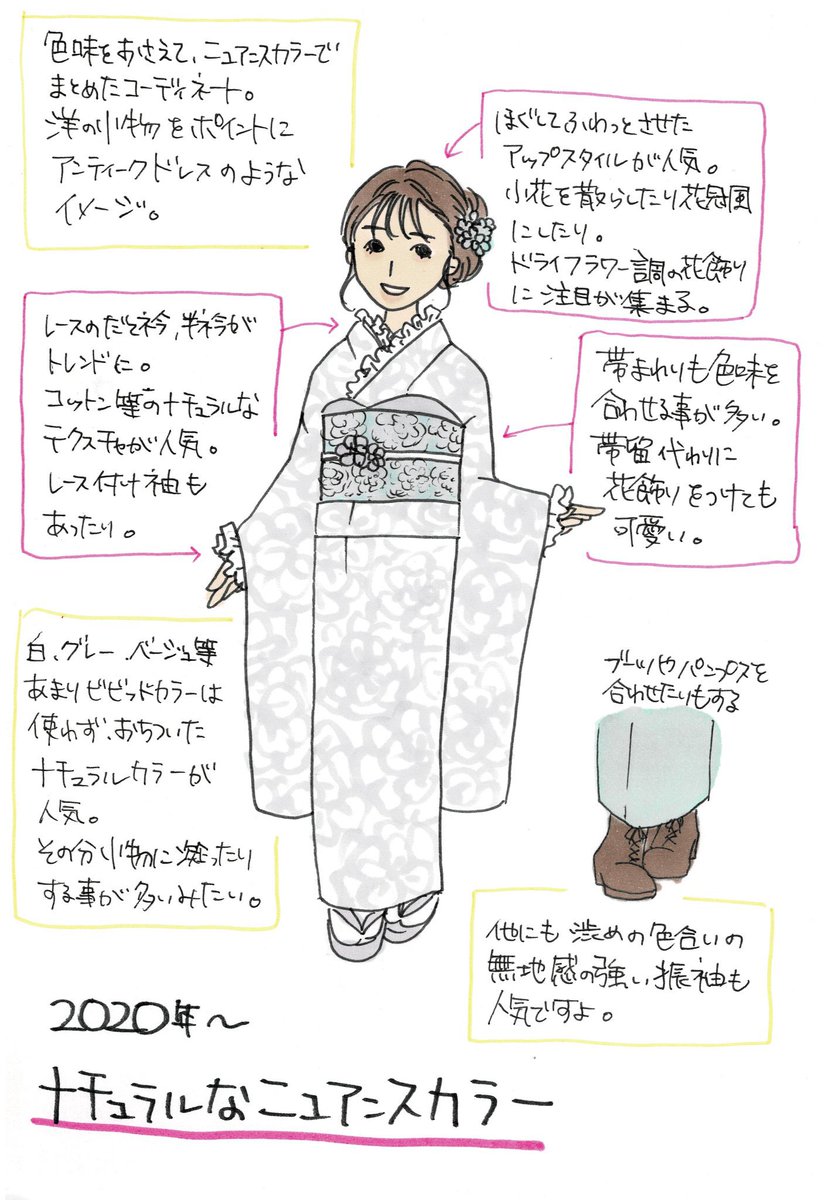 色味をおさえて、ニュアンスカラーで
まとめたコーディネート。
洋の小物をポイントに
アンティークドレスのような
イメージ。
ほぐしてふわっとさせた
アップスタイルが人気。
小花を散らしたり花冠風
にしたり。
ドライフラワー調の花飾り
に注目が集まる。
レースのだて衿、半衿が
トレンドに。
コットン等のナチュラルな
テクスチャが人気。
レース付け袖も
あったり。
帯まわりも色味を
合わせる事が多い。
帯留代わりに
花飾りをつけても
可愛い。
白、グレー、ベージュ等
あまりビビッドカラーは
使わず、おちついた
ナチュラルカラーが
人気。
その分小物に凝ったり
する事が多いみたい。
ブーツやパンプスを
合わせたりもする
他にも渋めの色合いの
無地感の強い振袖も
人気ですよ。
2020年〜
ナチュラルなニュアンスカラー